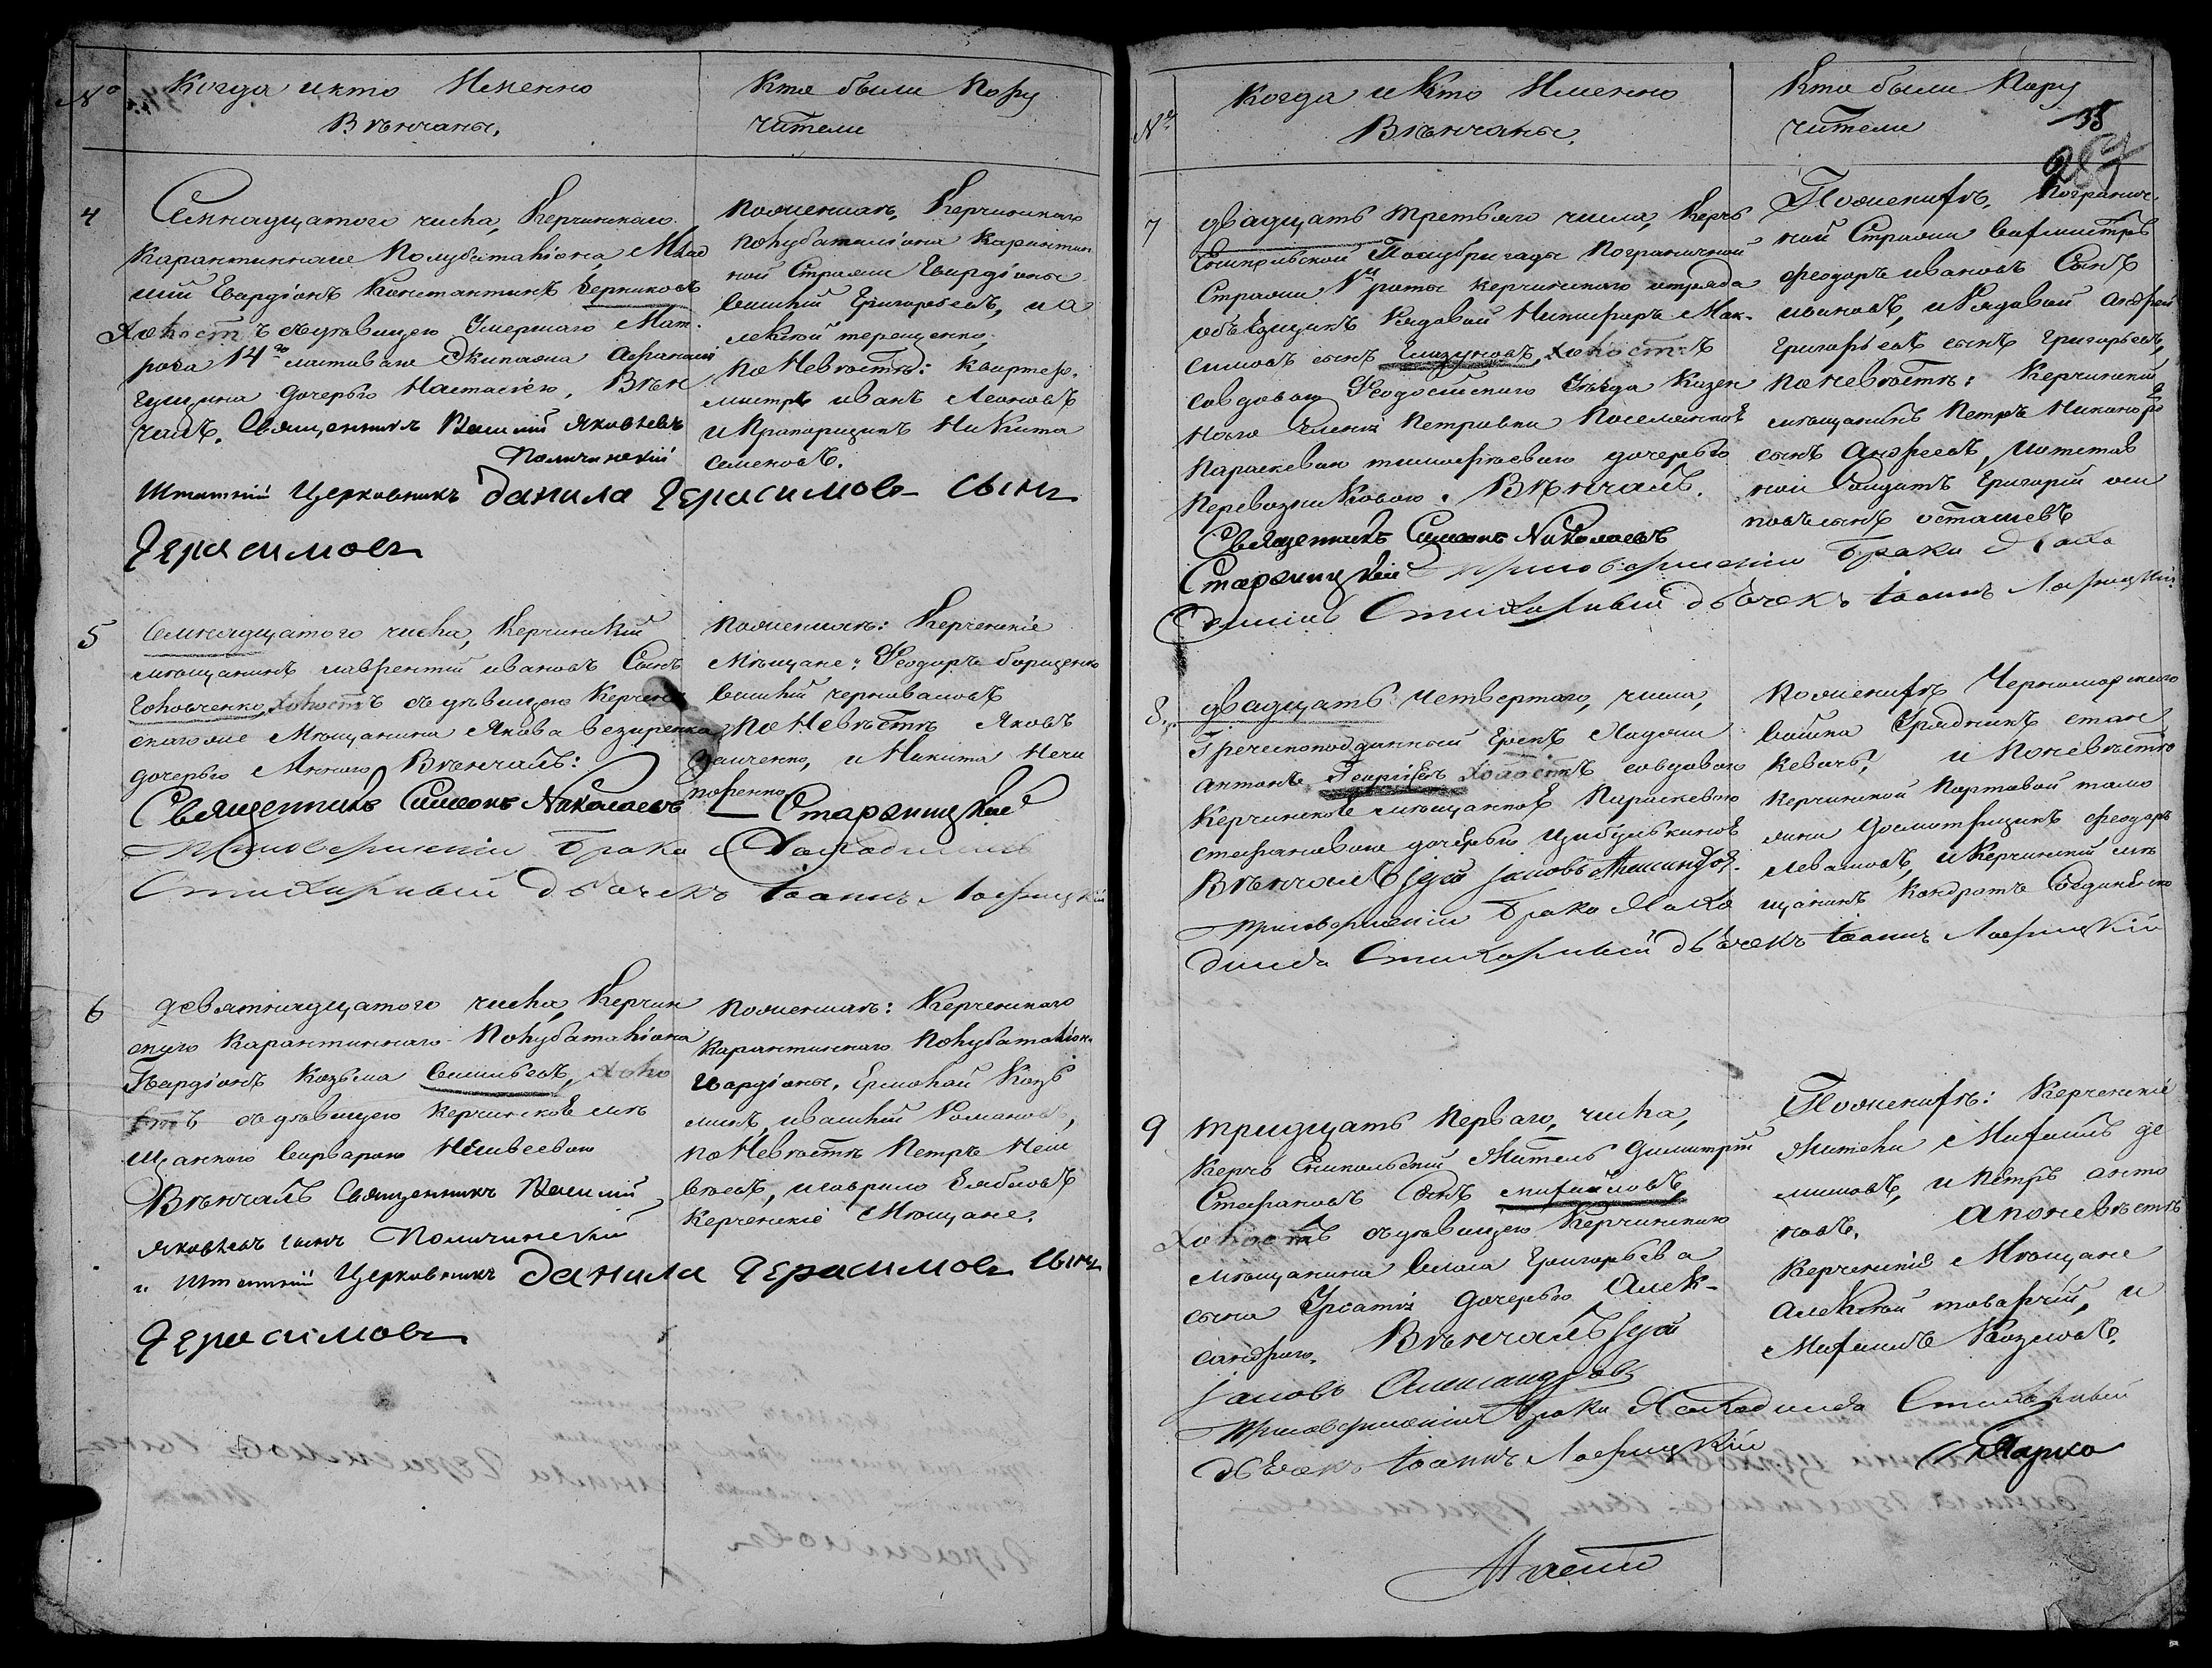 №
Когда и кто Именно
Вѣнчаны.
Кто были Пору
чители
4
Семнадцатого числа, Керчинскаго
Карантиннаго Полубаталіона, Млад
шій Гвардіонъ Константинъ Берниковъ
Холостъ съ дѣвицею Умершаго Мат
роса 14го ластоваго Экипажа Афанасія
дочерью Настасіею, Вѣн
чалъ. Священникъ Василій Яковлевъ
Поличинскій
Штатній Церковникъ Данила Герасимовъ Сынъ
Герасимовъ
Поженихѣ, Керчинскаго
полубаталіона Карантин
ной Стражи Гвардіоны
Василій Григорьевъ, и а
лексѣй терещенко,
по Невѣстѣ: квартер
мистръ иванъ Леоновъ
и Прапорщикъ Никита
семеновъ.
5
Семнадцатого числа, Керчинскій
мѣщанинъ лаврентій ивановъ Сынъ
Головченко, холостъ съ дѣвицею Керчен
скагоже Мѣщанина Якова Везиренка
дочерью Анною Вѣнчалъ:
Священникъ Симеонъ Николаевъ Старжицкій
присовершеніи брака находился
Стихарный дьячекъ Іоаннъ
Поженихѣ: Керченскіе
Мѣщане: Ѳеодоръ борщенко
Василій черноваловъ
по Невѣстѣ Яковъ
и Никита Нечи
поренко
6
девятнадцатого числа, Керчин
скуго Карантиннаго Полубаталіона
Гвардіонъ Козьма Савельевъ, холо
стъ съ дѣвицею керчинскоѣ мѣ
щанкою варварою
Вѣнчалъ Священникъ Василій
Яковлевъ сынъ Поличинскій
и Штатній Церковникъ Данила Герасимовъ Сынъ
Герасимовъ
Поженихѣ: Керченскаго
Карантиннаго Полубаталіона
Гвардіоны, Ермолай Козь
минъ, ивасилій Романовъ,
по Невѣстѣ Петръ
игаврило
Керченскіе Мѣщане.
№
Когда и Кто Именно
Вѣнчаны.
Кто были Пору
чители
38
7
двадцать третьяго числа, Керчь
Еникольской Полубригады Пограничной
Стражи 1й роты керчинскаго отряда
объѣздчикъ Рядовой Никифоръ Мак-
симовъ сынъ Глазуновъ, холостъ
совдовою Ѳеодосійского Уѣзда Казен
ного Селенія Петровки Поселянкоѣ
Параскевою тимофѣевою дочерью
Перевозниковою. Вѣнчалъ.
Священникъ Симеонъ Николаевъ
Старжицкій присовершеніи брака Нахо
дился Стихарный дьячекъ Іоаннъ
Поженихѣ, Погранич
ной Стражи вахмистръ
феодоръ ивановъ Сынъ
ивановъ, и Рядовой андрей
григорьевъ сынъ Григорьевъ,
поневѣстѣ: Керчинскій
мѣщанинъ Петръ Никаноро
сынъ Андреевъ, иотстав
ной Солдатъ Григорій оси
повъ сынъ осташевъ
8.
двадцать четвертого, числа,
Греческоподданный грекъ
Антонъ Георгіевъ холостъ совдовою
Керчинскоѣ мѣщанкоѣ Параскевою
стефановою дочерью Цибулькиноѣ
Вѣнчалъ Іерей Іаковъ Александровъ.
присовершеніи брака Нахо
дился Стихарный дьячекъ Іоаннъ
поженихѣ Черноморскаго
войска Урядникъ стан
кевичъ, и поневѣстѣ
керчинской Портовой тамо
жни досмотрщикъ феодоръ
левашовъ, и Керчинскій мѣ
щанинъ Кондратъ
9
тридцать Перваго, числа,
Керчь Еникольскій Житель Димитрій
Стефановъ Сынъ михайловъ,
Холостъ съ дѣвицею Керчинскаго
мѣщанина Григорьева
сына дочерью Алек-
сандрою. Вѣнчалъ Іерей
Іаковъ Александровъ
присовершеніи брака Находился Стихарный
дьячекъ Іоаннъ
Поженихѣ: Керченскіе
Жители Михаилъ де
мидовъ, и Петръ анто
новъ. апоневѣстѣ
Керченскіе Мѣщане
алексѣй и
Михаилъ Козловъ.